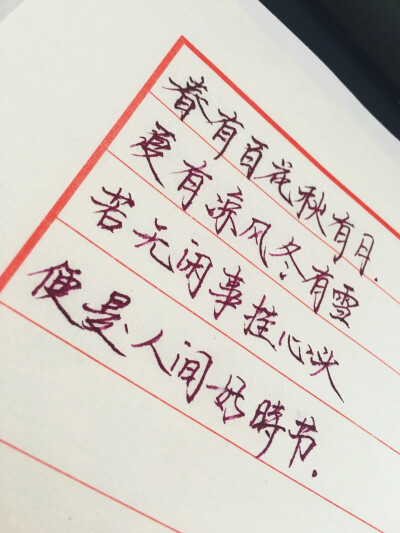 春有百花秋有月.
夏有凉风冬有雪
若无闲事挂心头
便是人间好時节.